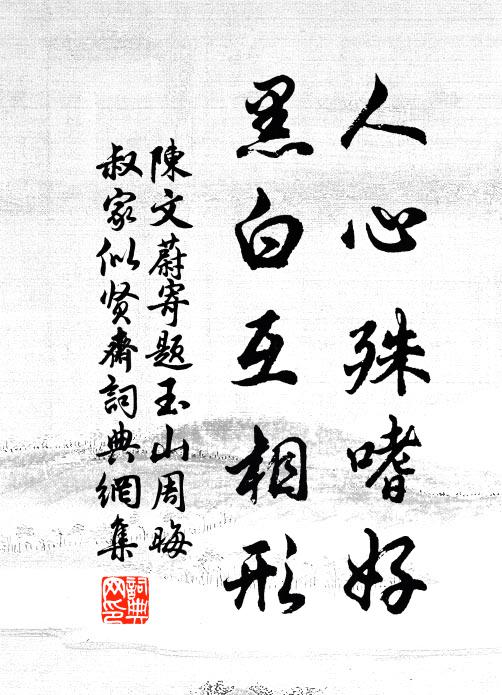 人心殊嗜好
黑白互相形
陳文蔚寄題玉山周晦
叔家似贤齋詞典網集
詞典網印